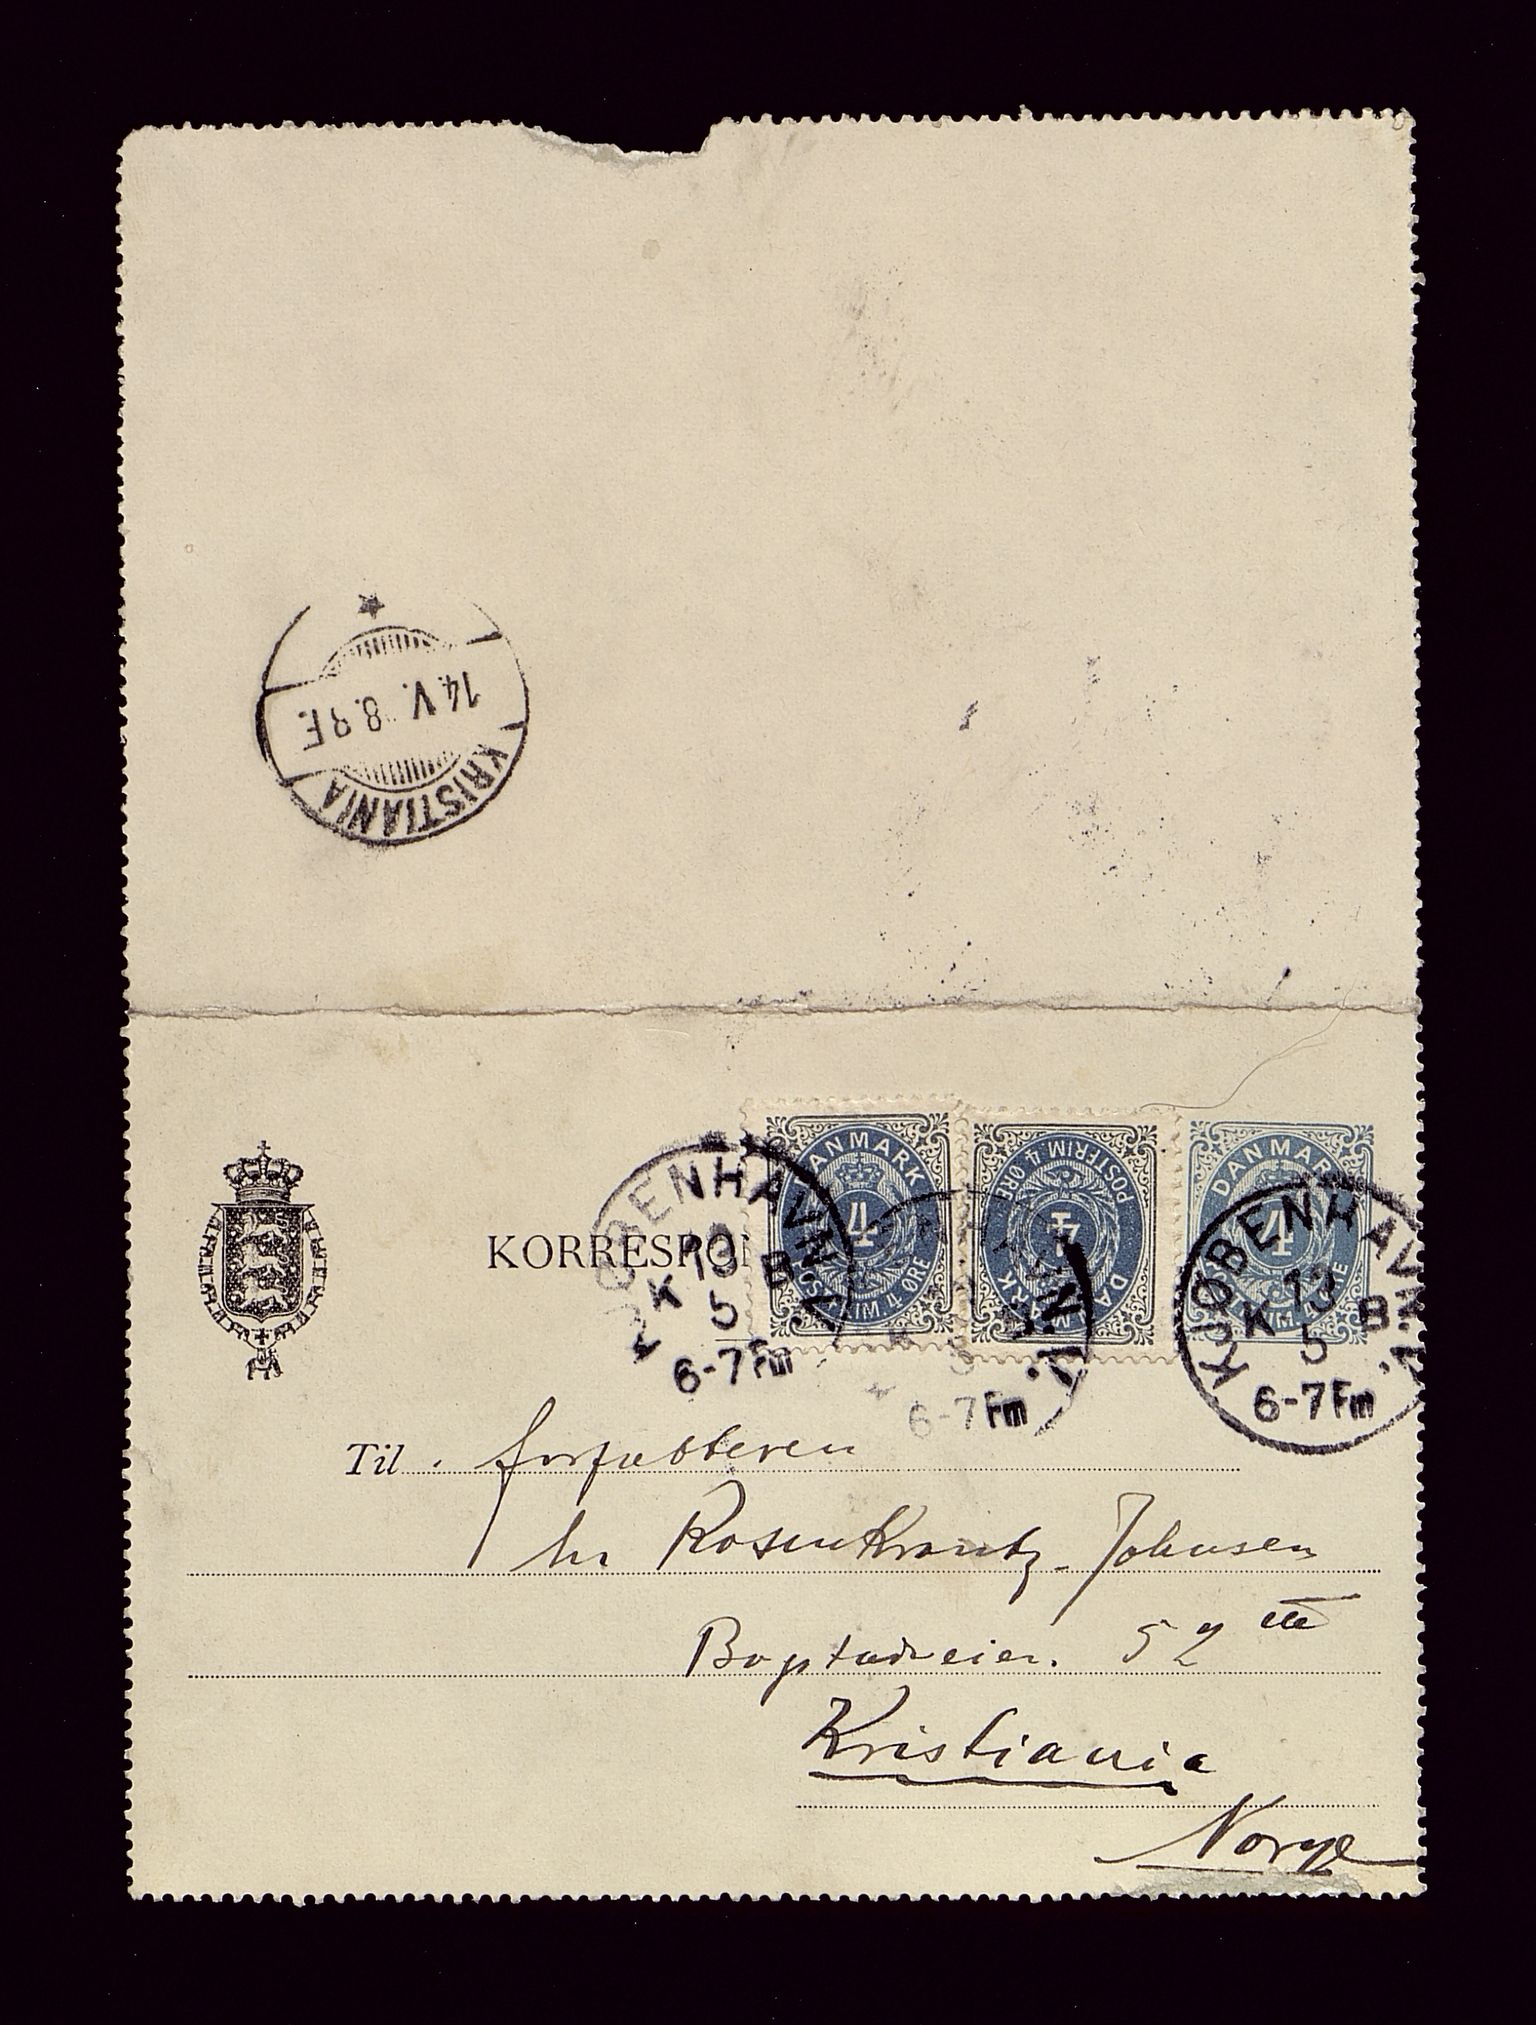 KRISTIANIA
14.V. 8.8E.
KORRESPON
DANMARK
4
POSTFRIM. 4 ØRE
DANMARK
4
POSTFRIM. 4 ØRE
DANMARK
4
POSTFRIM. 4 ØRE
KJØBENHAVN.V.
K 13 B
5
6-7Fm
N.V.
6-7Fm
KJØBENHAVN.V.
K 13 B
5
6-7Fm
Til forfatteren
hr Rosenkrantz-Johnsen
Bogstadveien. 52
Kristiania
Norge